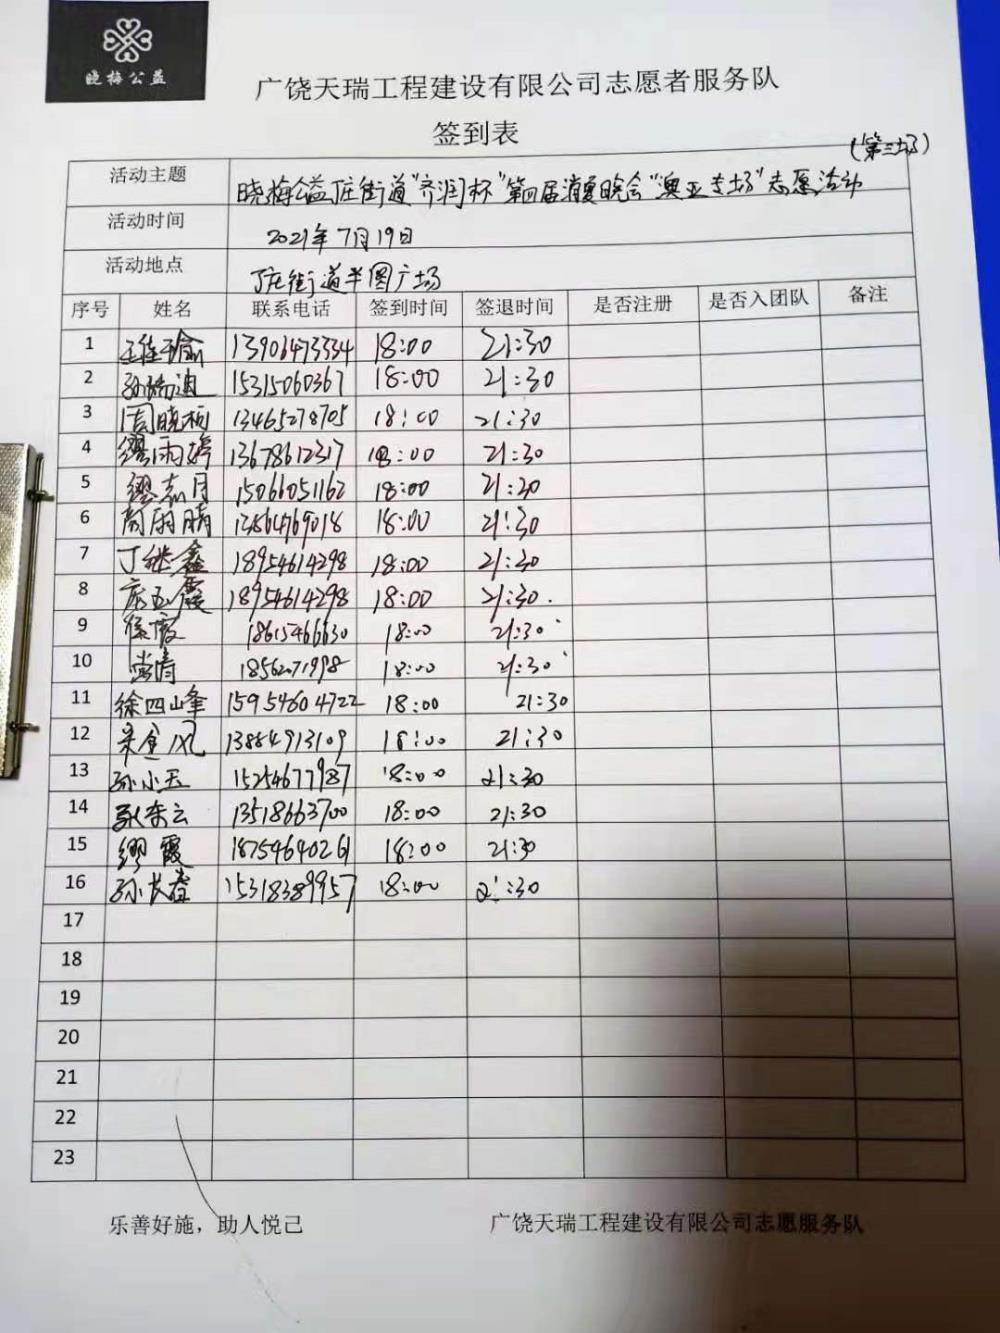 晓梅公益
广饶天瑞工程建设有限公司志愿者服务队
签到表
(第三场)
活动主题 晓梅公益丁庄街道"齐润杯"第四届消夏晚会"澳亚专场"志愿活动
活动时间 2021年7月19日
活动地点 丁庄街道半圆广场
序号 姓名 联系电话 签到时间 签退时间 是否注册 是否入团队 备注
1 13906473334 18:00 21:30
2 15315060367 18:00 21:30
3 周晓 13465278705 18:00 21:30
4 缪雨婷 13678612317 18:00 21:30
5 缪志月 15066051162 18:00 21:30
6 周雨晴 13864769018 18:00 21:30
7 丁继鑫 18954614298 18:00 21:30
8 18954614298 18:00 21:30
9 徐霞 18615466630 18:00 21:30
10 18562071998 18:00 21:30
11 徐四峰 15954604722 18:00 21:30
12 13864913109 18:00 21:30
13 孙小玉 15254677987 18:00 21:30
14 耿东云 13518663700 18:00 21:30
15 缪霞 18754640261 18:00 21:30
16 孙长春 15318389957 18:00 21:30
17
18
19
20
21
22
23
乐善好施，助人悦己 广饶天瑞工程建设有限公司志愿服务队